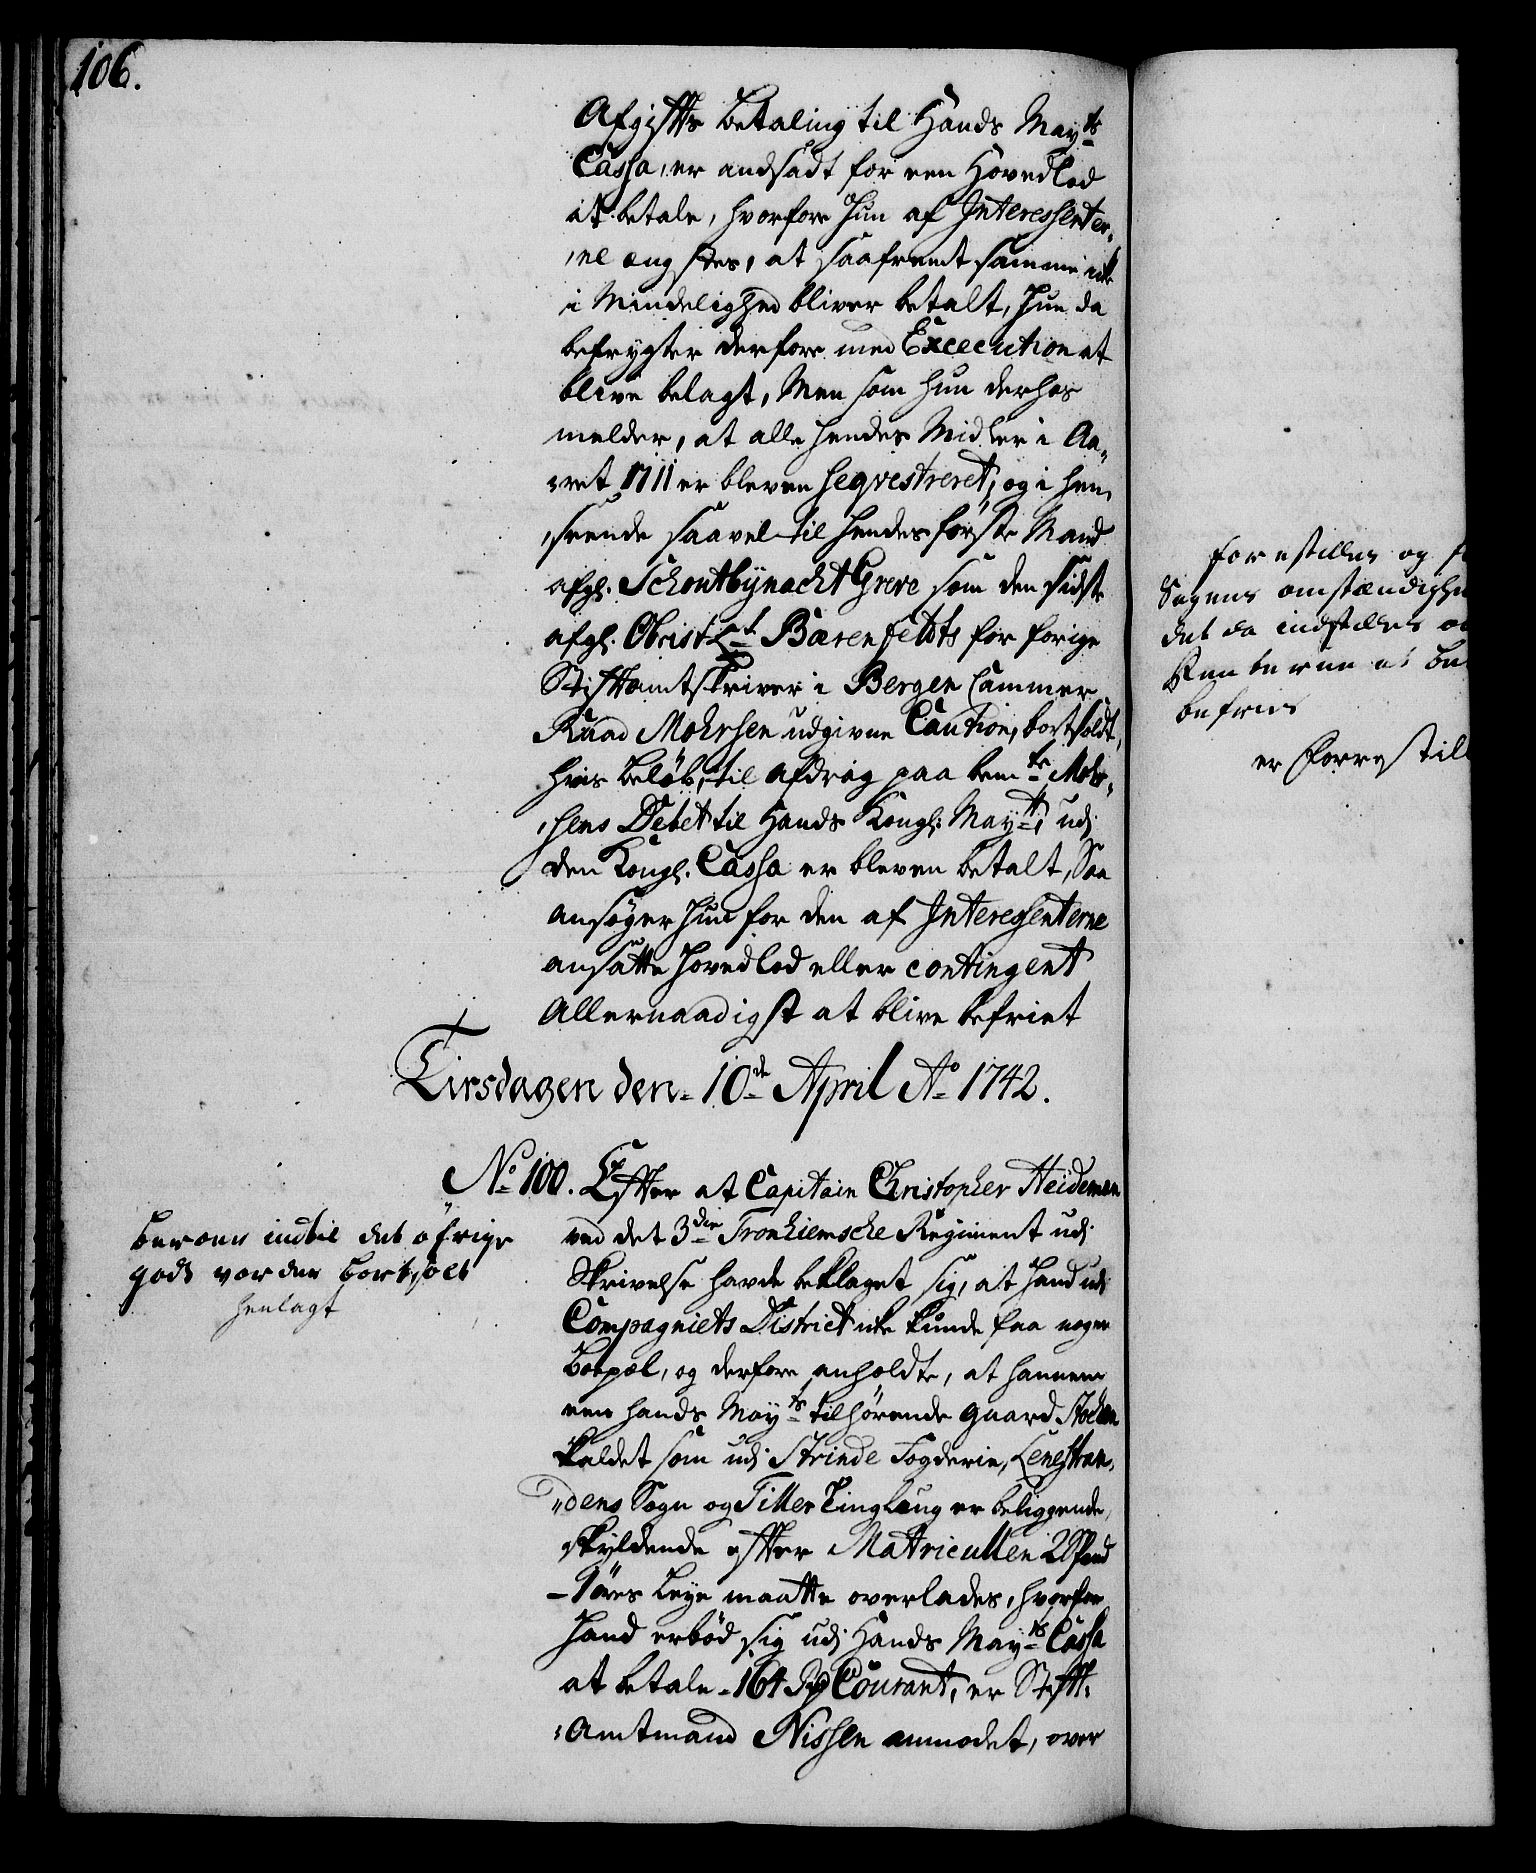 106.
Afgiftts betaling til Hands May:ts
Cassa, er andsadt for een Hovedlod
at betale, hvorfore hun af Interessenter-
ne ængstes, at saafremt samme icke
i Mindelighed bliver betalt, hun da
befrygter derfore med Excecution at
blive belagt, Men som hun derhos
melder, at alle hendes Midler i Aa-
ret 1711 er bleven seqvestreret, og i hen-
seende saavel til hendes første Mand
afgl. Schoutbynacht Greve som den sidste
afgl. Obrist Lt Bærenfeldts for forige
Stiftamtskriver i Bergen Cammer
Raad Mohrsen udgivne Caution, bortsoldt,
hvis beløb, til afdrag paa bem:te Mohr-
sens Debet til Hands Kongl: May:tt, udj
den Kongl. Cassa er bleven betalt, Saa
ansøger hun for den af Interessenterne
ansatte Hovedlod eller contingent
Allernaadigst at blive befriet
Tirsdagen den 10de April Ao 1742.
No 100. Efter at Capitain Christopher Heideman
ved det 3die Tronhiemsche Regiment udj
Skrivelse havde beklaget sig, at hand udj
Compagniets District icke kunde faa nogen
Boepæl, og derfore anholdte, at hannem
een hands May:ts tilhørende gaard Stocken
kaldet som udj Strinde Fogderie, Lenestran-
dens Sogn og Tiller Tinglaug er beliggende,
skyldende efter Matricullen 2 Spand
1 øres leye maatte overlades, hvorfore
hand erbød sig udj Hands May:ts Cassa
at betale 164 Rd Courant, er Stift-
Amtmand Nissen anmodet, over
beroer indtil det øfrige
gods vorder bortsolt
henlagt
forestilles og
Sagens omstændighe
det da indstilles o
Renterne at be
befries
er forrestill